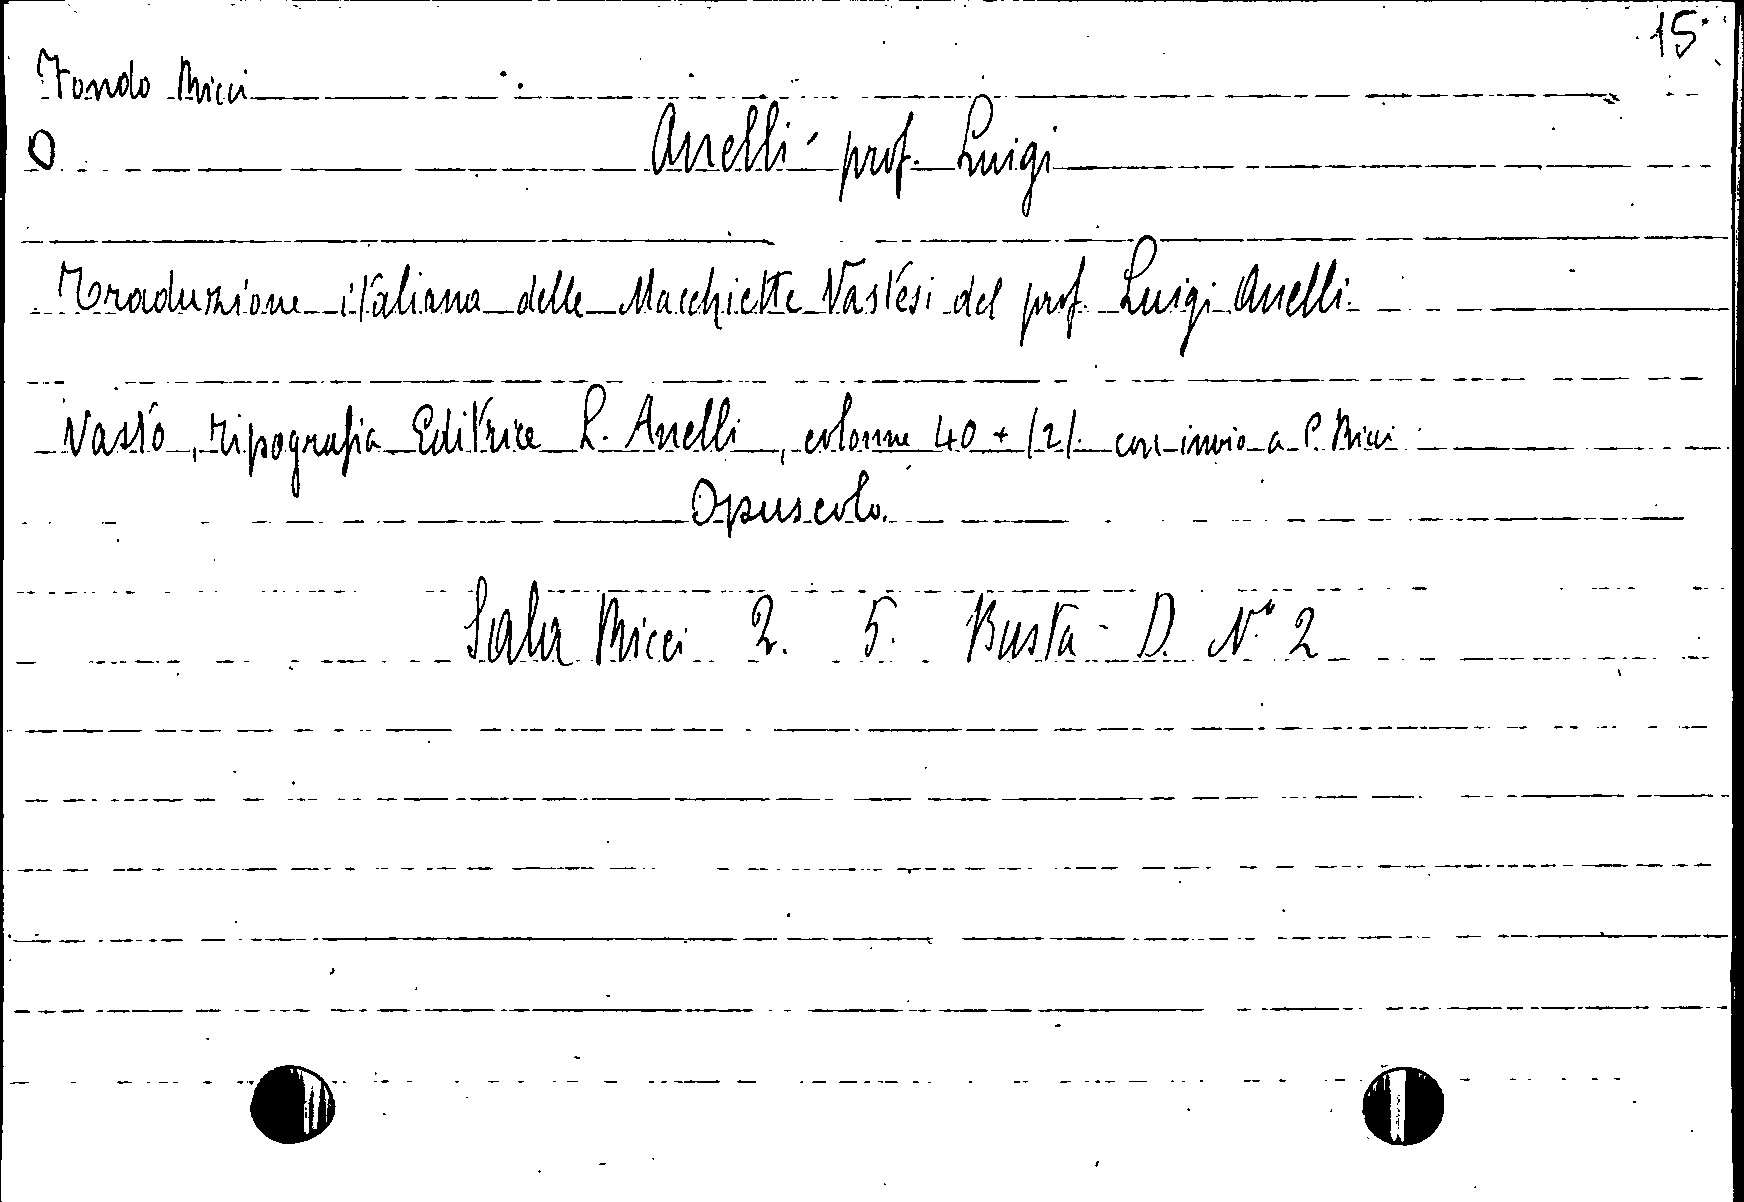 15
Fondo Ricci
O
Anelli - prof. Luigi
Traduzione italiana delle Macchiette Vastesi del prof. Luigi Anelli.
Vasto, Tipografia Editrice L. Anelli, colonne 40 + (2). con invio a P. Ricci
Opuscolo.
Sala Ricci 2. 5. Busta - D. N.° 2